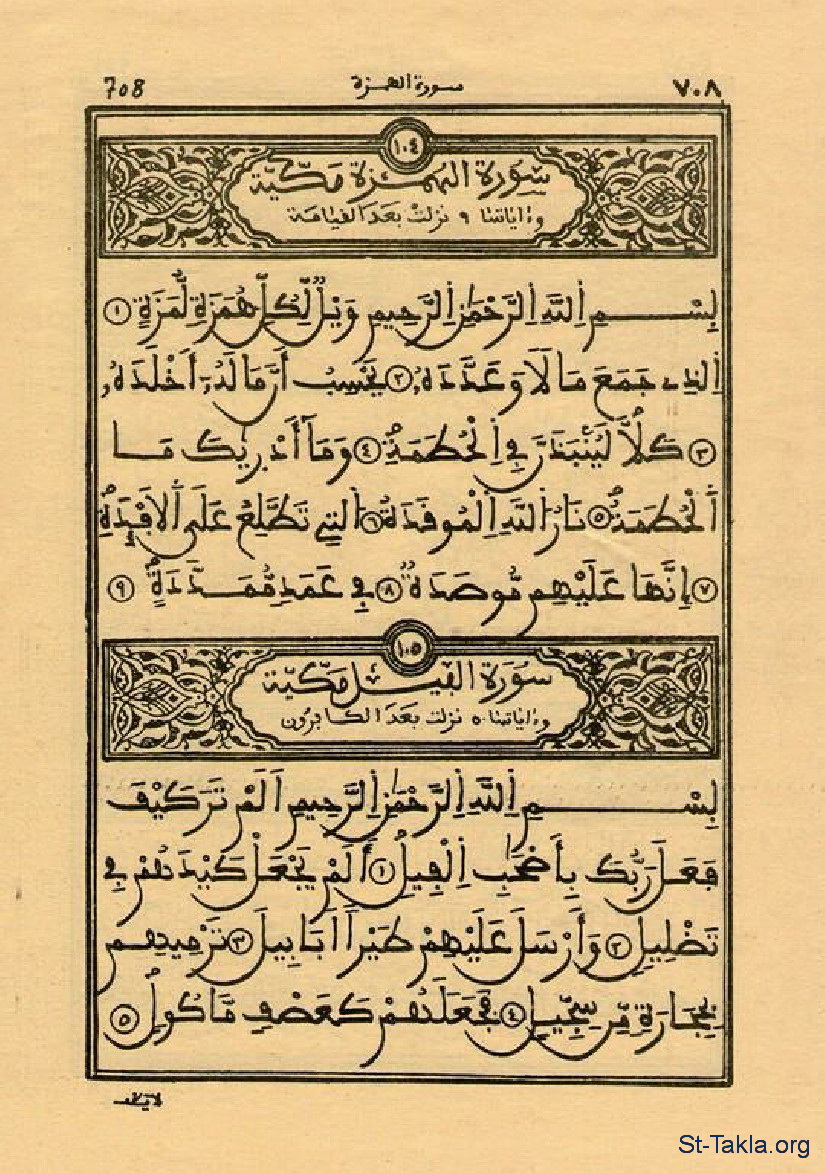 708 سورة الهمزة ٧٠٨
١٠٤
سُورَةُ الهُمَزَةِ مَكِّيَّة
وءاياتها ٩ نزلت بعد القيامة
بِسْمِ اِللَّهِ اِلرَّحْمَٰنِ اِلرَّحِيمِ وَيْلٌ لِّكُلِّ هُمَزَةٍ لُّمَزَةٍ ١
اِلذِے جَمَعَ مَالًا وَعَدَّدَهُۥ ٢ يَحْسِبُ أَنَّ مَالَهُۥٓ أَخْلَدَهُۥ
٣ كَلَّا لَيُنۢبَذَنَّ فِي اِلْحُطَمَةِ ٤ وَمَآ أَدْرٜيٰكَ مَا
اَلْحُطَمَةُ ٥ نَارُ اُللَّهِ اِلْمُوقَدَةُ ٦ اُلتِي تَطَّلِعُ عَلَى اَلَافْـِٕدَةِ
٧ إِنَّهَا عَلَيْهِم مُّوصَدَةٌ ٨ فِي عَمَدٍ مُّمَدَّدَةٍ ٩
١٠٥
سُورَةُ الفِيلِ مَكِّيَّة
وءاياتها ٥ نزلت بعد الكافرون
بِسْمِ اِللَّهِ اِلرَّحْمَٰنِ اِلرَّحِيمِ اَلَمْ تَرَ كَيْفَ
فَعَلَ رَبُّكَ بِأَصْحَٰبِ اِلْفِيلِ ١ أَلَمْ يَجْعَلْ كَيْدَهُمْ فِي
تَضْلِيلٍ ٢ وَأَرْسَلَ عَلَيْهِمْ طَيْراً اَبَابِيلَ ٣ تَرْمِيهِم
بِحِجَارَةٍ مِّن سِجِّيلٍ ٤ فَجَعَلَهُمْ كَعَصْفٍ مَّاكُولٍ ٥
لإيلف
St-Takla.org